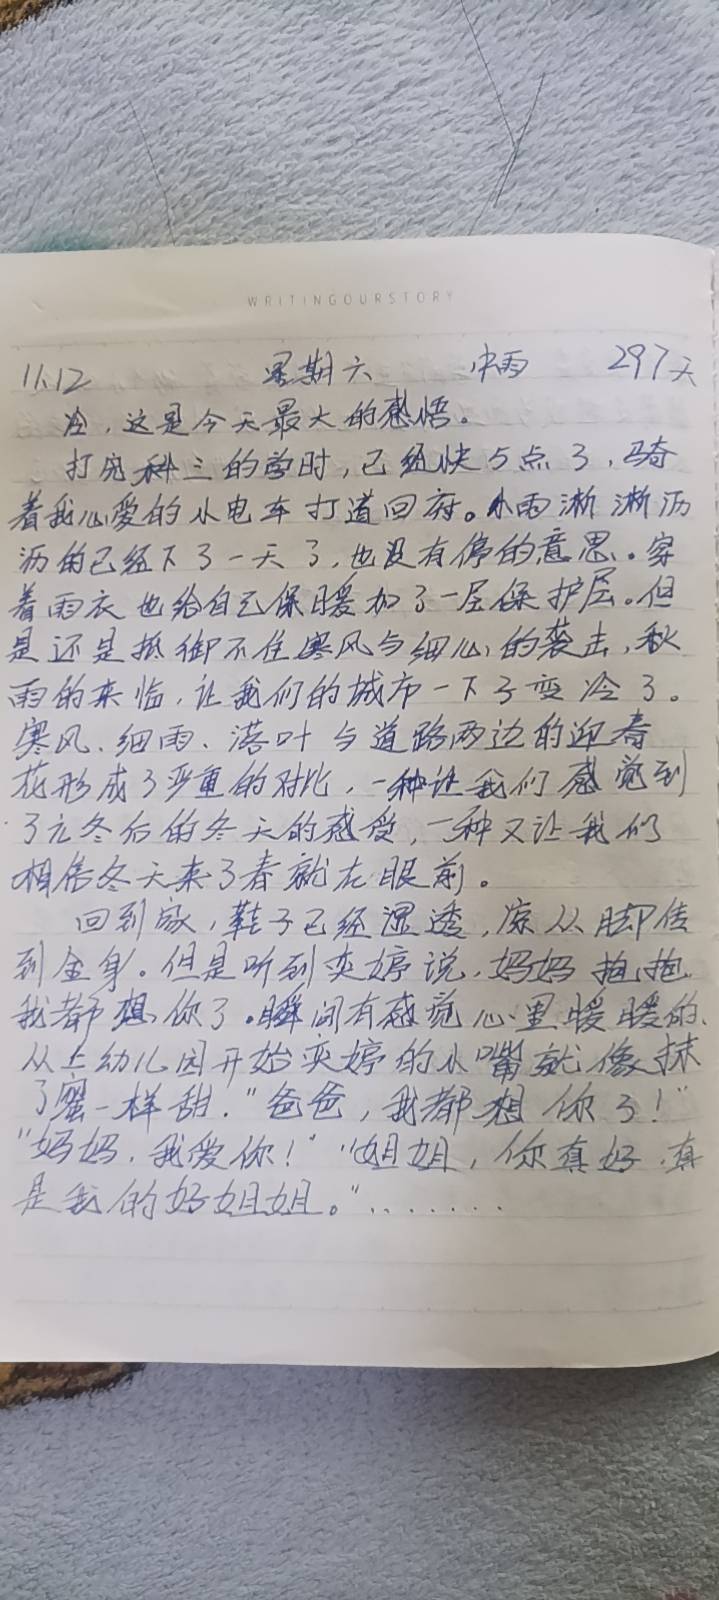 WRITINGOURSTORY
11.12 星期六 中雨 297天
冷,这是今天最大的感悟。
打完科三的学时,已经快5点了,骑
着我心爱的小电车打道回府。小雨淅淅沥
沥的已经下了一天了,也没有停的意思。穿
着雨衣也给自己保暖加了一层保护层。但
是还是抵御不住寒风与细心的袭击,秋
雨的来临,让我们的城市一下子变冷了。
寒风、细雨、落叶与道路两边的迎春
花形成了严重的对比,一种让我们感觉到
了立冬后的冬天的感受,一种又让我们
相信冬天来了春就在眼前。
回到家,鞋子已经湿透,凉从脚传
到全身。但是听到奕婷说,妈妈抱抱
我都想你了。瞬间有感觉心里暖暖的、
从上幼儿园开始奕婷的小嘴就像抹
了蜜一样甜."爸爸,我都想你了!"
"妈妈,我爱你!" "姐姐,你真好,真
是我的好姐姐。".......